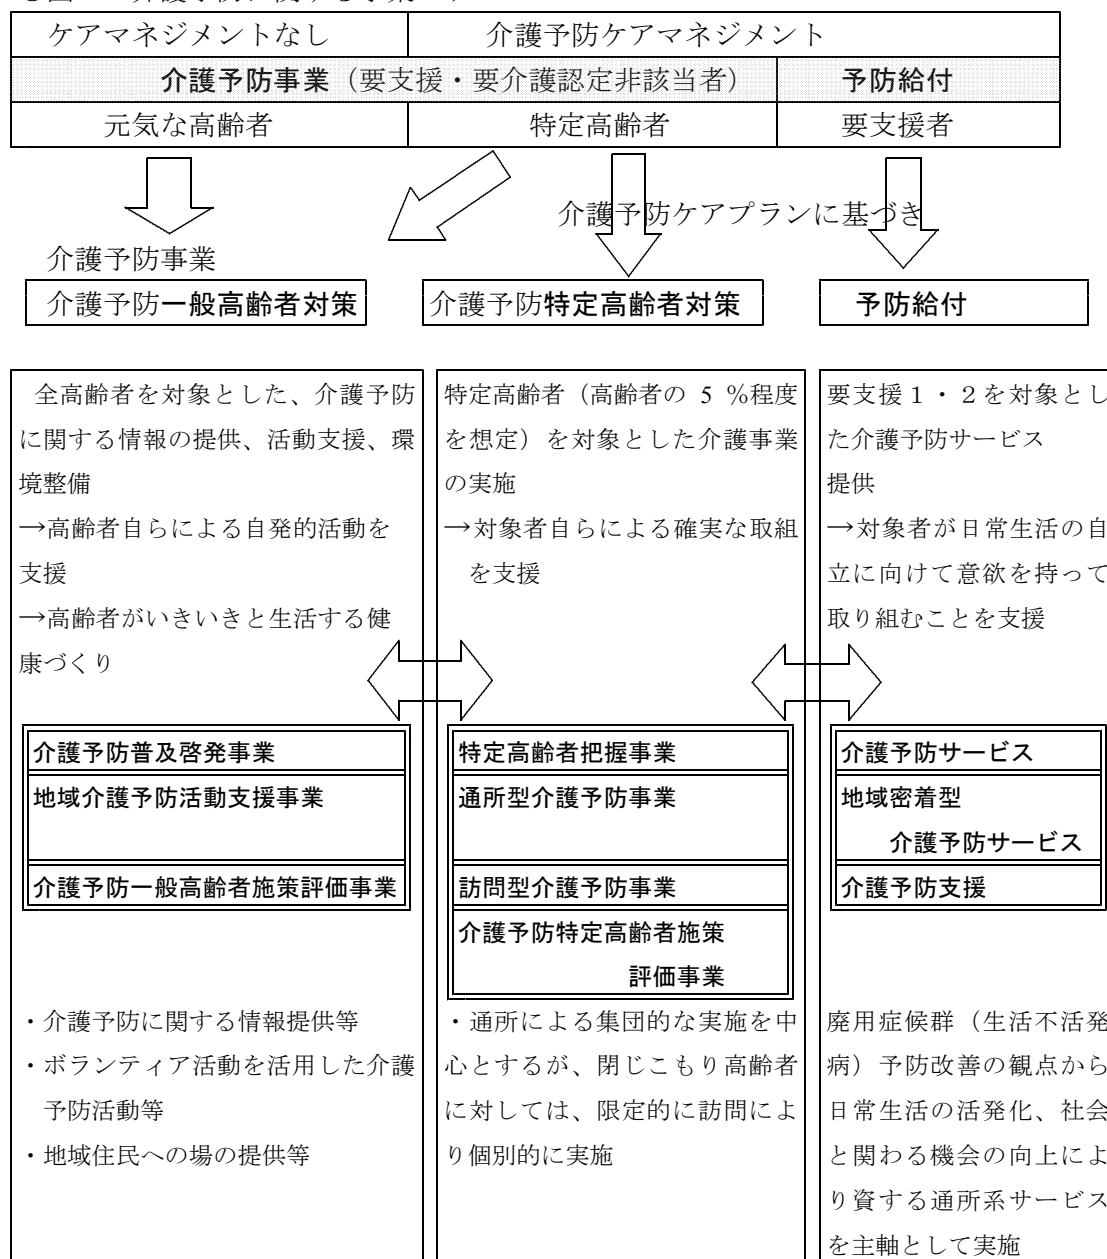 ケアマネジメントなし　介護予防ケアマネジメント
介護予防事業（要支援・要介護認定非該当者）　予防給付
元気な高齢者　特定高齢者　要支援者
介護予防ケアプランに基づき
介護予防事業
介護予防一般高齢者対策　介護予防特定高齢者対策　予防給付
全高齢者を対象とした、介護予防
に関する情報の提供、活動支援、環
境整備
→高齢者自らによる自発的活動を
支援
→高齢者がいきいきと生活する健
康づくり
介護予防普及啓発事業
地域介護予防活動支援事業
介護予防一般高齢者施策評価事業
・介護予防に関する情報提供等
・ボランティア活動を活用した介護
予防活動等
・地域住民への場の提供等
特定高齢者（高齢者の 5 %程度
を想定）を対象とした介護事業
の実施
→対象者自らによる確実な取組
を支援
特定高齢者把握事業
通所型介護予防事業
訪問型介護予防事業
介護予防特定高齢者施策
評価事業
・通所による集団的な実施を中
心とするが、閉じこもり高齢者
に対しては、限定的に訪問によ
り個別的に実施
要支援１・２を対象とし
た介護予防サービス
提供
→対象者が日常生活の自
立に向けて意欲を持って
取り組むことを支援
介護予防サービス
地域密着型
介護予防サービス
介護予防支援
廃用症候群（生活不活発
病）予防改善の観点から
日常生活の活発化、社会
と関わる機会の向上によ
り資する通所系サービス
を主軸として実施